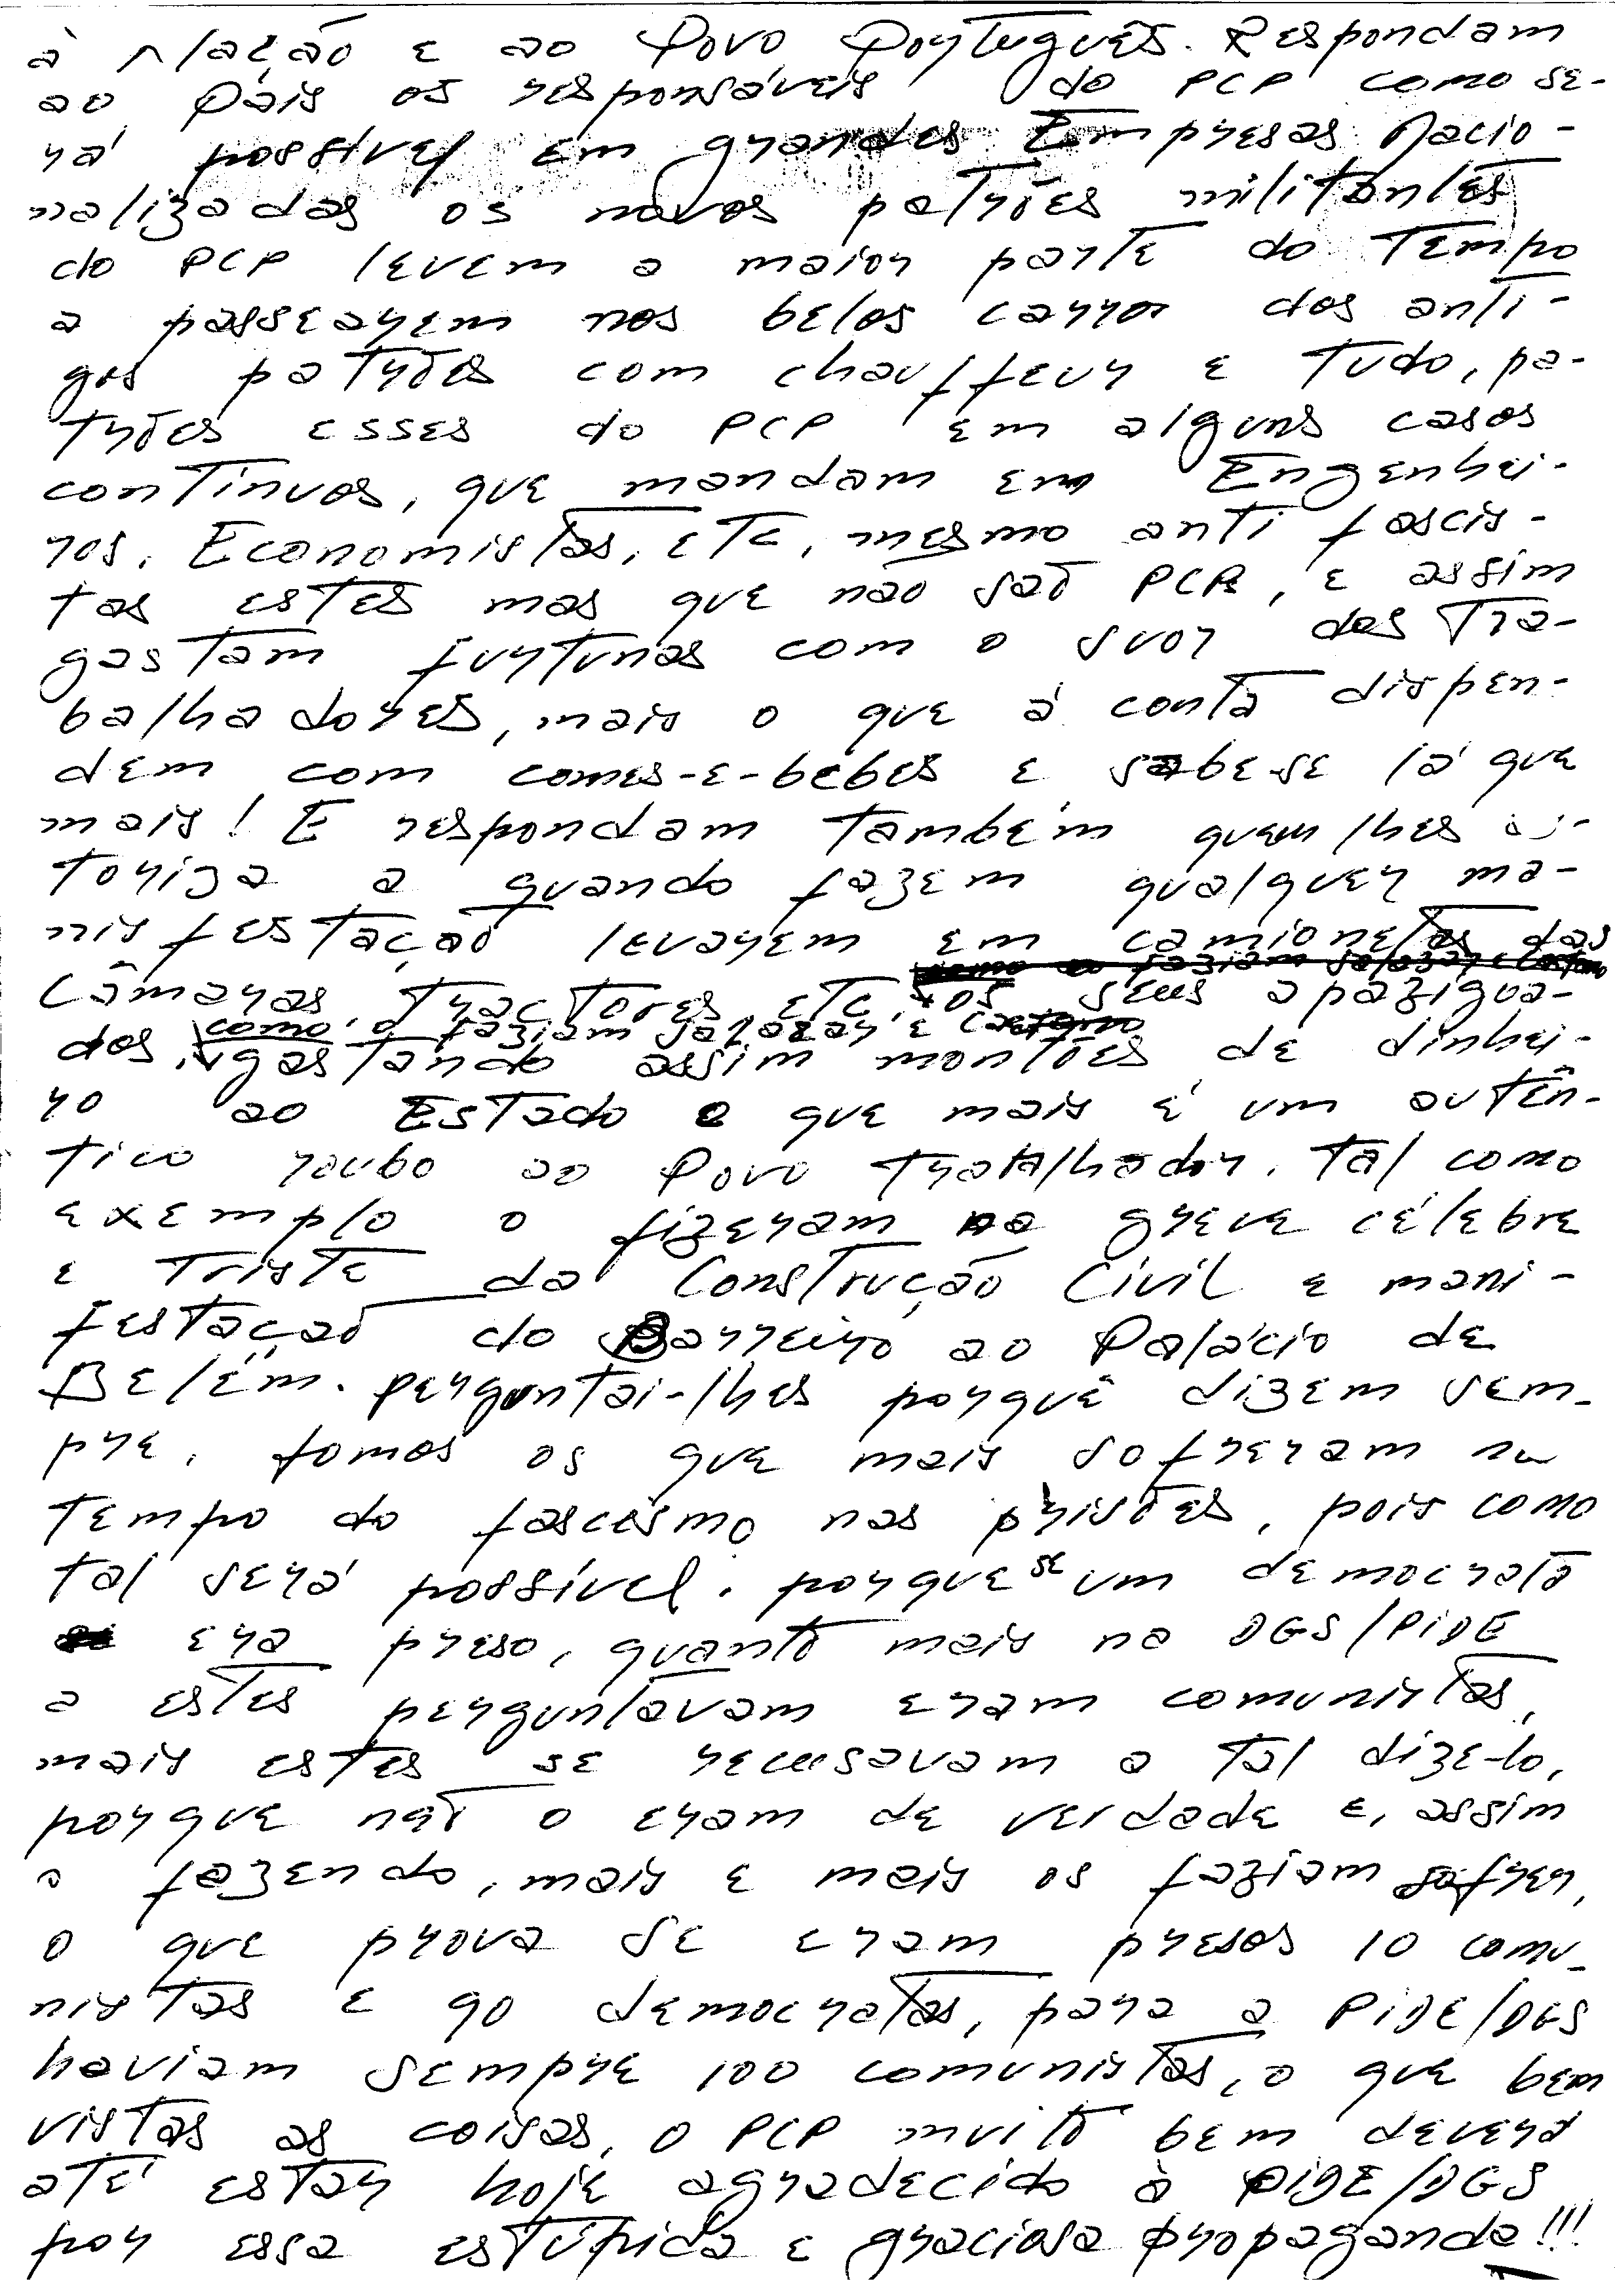 à Nação e ao Povo Português. Respondam
ao Páis os responsáveis do PCP como se-
rá possível em grandes Empresas Nacio-
nalizadas os novos patrões militantes
do PCP levem a maior parte do tempo
a passearem nos belos carros dos anti-
gos patrões com chauffeur e tudo, pa-
trões esses do PCP em alguns casos
contínuos, que mandam em Engenhei-
ros, Economistas, etc, mesmo anti fascis-
tas estes mas que não são PCPs, e assim
gastam furtunas com o suor dos Tra-
balhadores, mais o que á conta dispen-
dem com comes-e-bebes e sabe-se lá que
mais! E respondam também quem lhes au-
toriza a quando fazem qualquer ma-
nisfestação levarem em camionetas das
Câmaras, Tractores, etc. os seus apazigua-
como o faziam Salazar e Caetano
dos, gastando assim montões de dinhei-
ro ao Estado e que mais é um autên-
tico roubo ao Povo Trabalhador. Tal como
exemplo o fizeram na greve célebre
e triste da Construção Civil e mani-
festação do Barreiro ao Palácio de
Belém. Perguntai-lhes porquê dizem sem-
pre, fomos os que mais sofreram no
tempo do fascismo nas prisões, pois como
tal será possível. porque se um democrata
era preso, quanto mais na DGS/PIDE
a estes perguntavam eram comunistas,
mais estes se recusavam a tal dize-lo,
porque não o eram de verdade e, assim
o fazendo, mais e mais os faziam sofrer,
o que prova se eram presos 10 comu-
nistas e 90 democratas, para a PIDE/DGS
haviam sempre 100 comunistas, o que bem
vistas as coisas, o PCP muito bem deverá
até estar hoje agradecido à PIDE/DGS
por essa estúpida e graciosa propaganda!!!